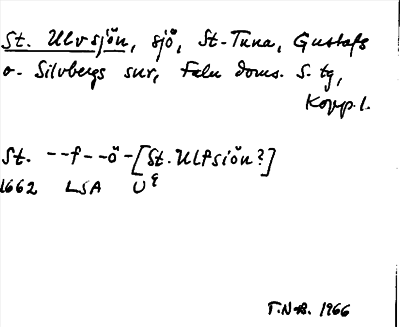 St. Ulvsjön, sjö, St-Tuna, Gustafs
o. Silvbergs snr, Falu doms. S. tg,
Kopp. l.
St. --f--ö-[St. Ulfsiön?]
1662 LSA U
T.N-B. 1966